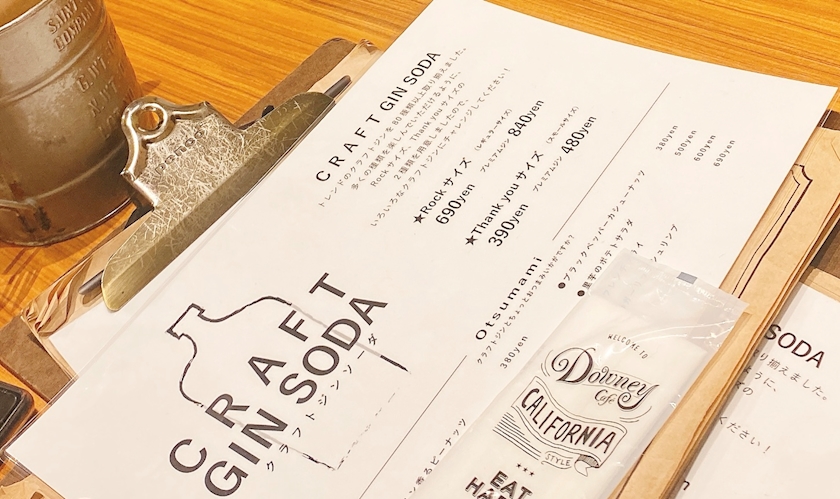 CRAFT GIN SODA
トレンドのクラフトジンを80種類以上取り揃えました。
多くの種類を楽しんでいただけるように、
Rock サイズ、Thank you サイズの
2種類を用意しましたので、
いろいろなクラフトジンにチャレンジしてください!
★Rock サイズ (レギュラーサイズ)
690yen プレミアムジン 840yen
★Thank you サイズ (スモールサイズ)
390yen プレミアムジン 480yen
Otsumami
クラフトジンとちょっとおつまみいかがですか?
●ブラックペッパーカシューナッツ
●黒芽のポテトサラダ
380yen
500yen
600yen
690yen
380yen
CRAFT
GIN SODA
クラフトジンソーダ
WELCOME TO
Downey
Cafe
CALIFORNIA
STYLE
EAT
SODA
ください!
penco